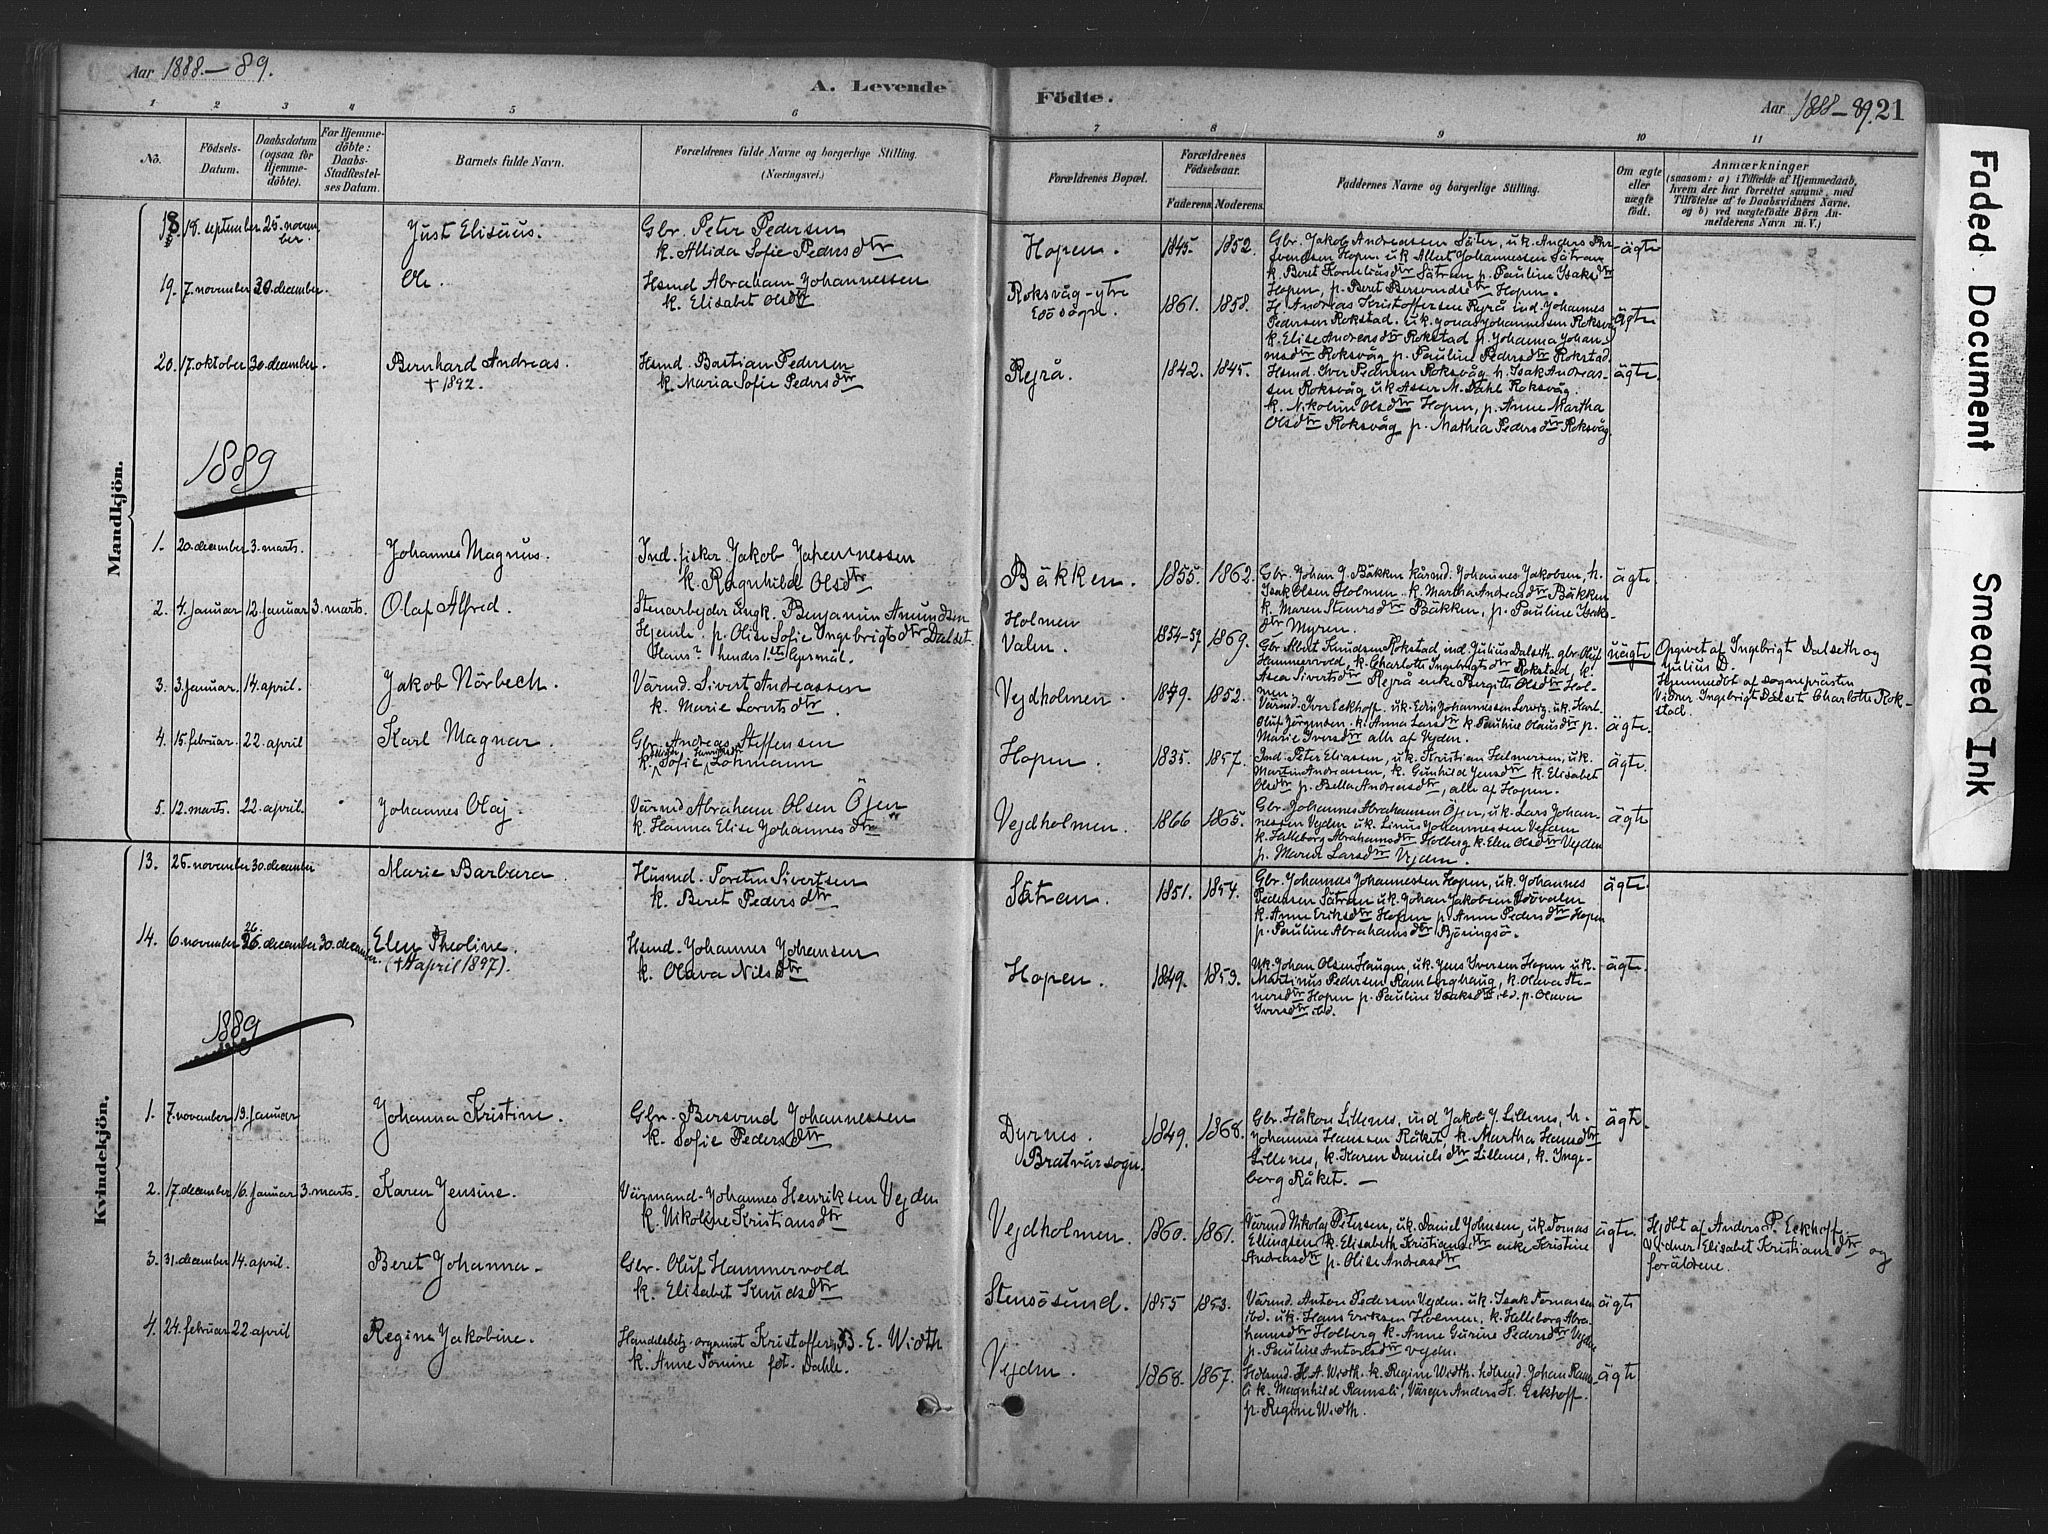 Aar 1888-89.
A. Levende Födte.
Aar 1888-89. 21
1 2 3 4 5 6 7 8 9 10 11
No.
Födsels-
Datum.
Daabsdatum
(ogsaa for
Hjemme-
döbte).
For Hjemme-
döbte:
Daabs-
Stadfæstel-
ses Datum.
Barnets fulde Navn.
Forældrenes fulde Navne og borgerlige Stilling.
(Næringsvei.)
Forældrenes Bopæl.
Forældrenes
Födselsaar.
Faderens. Moderens.
Faddernes Navne og borgerlige Stilling.
Om ægte
eller
uægte
födt.
Anmærkninger
(saasom: a) i Tilfælde af Hjemmedaab,
hvem der har forrettet samme, med
Tilföielse af to Daabsvidners Navne,
og b) ved uægtefödte Börn An-
melderens Navn m. V.)
Mandkjön.
18. 18. september 25. novem-
ber.
Just Elisæus.
Gbr. Peter Pedersen
k. Allida Sofie Pedersdtr
Hopen. 1845. 1852.
Gbr. Jakob Andreassen Säter, u.k. Anders Ber-
svendsen Hopen u.k Albert Johannessen Sätran
k. Beret Korneliusdtr Sätran p. Pauline Isaksdtr
Hopen, p. Beret Bersvendsdtr Hopen.
ägte
19. 7. november 30. december.
Ole.
Hsmd Abraham Johannessen
k. Elisabet Olsdtr
Roksvåg-ytre
Edösogn.
1861. 1858.
H. Andreas Kristoffersen Rejrå ind. Johannes
Pedersen Rokstad. u.k. Jonas Johannessen Roksvåg
k. Elise Andreasdtr Rokstad p. Johanna Johan-
nesdtr Roksvåg p. Pauline Pedersdtr Rokstad.
ägte
20. 17. oktober 30. december.
Bernhard Andreas.
† 1892.
Hsmd. Bastian Pedersen
k. Maria Sofie Pedersdtr
Rejrå. 1842. 1845.
Hsmd. Iver Pedersen Roksvåg h. Isak Andreas-
sen Roksvåg u.k Asser M. Dahl Roksvåg.
k. Nikoline Olsdtr Hopen, p. Anne Martha
Olsdtr Roksvåg p. Mathea Pedersdtr Roksvåg.
ägte.
1889
1. 20. december 3. marts.
Johannes Magnus.
Ind. fisker Jakob
k. Ragnhild Olsdtr
Bäkken. 1855. 1862.
Gbr. Johan J. Bäkken kårmd. Johannes Jakobsen, h.
Isak Olsen Holmen. k. Martha Andreasdtr Bäkken
k. Maren Stenersdtr Bäkken, p. Pauline Isaks-
dtr Myren.
ägte.
2. 4. januar 12. januar 3. marts.
Olaf Alfred.
Stenarbejder ungk. Benjamin Amundsen
Hjemle. p. Olise Sofie Ingebrigtsdtr Dalset
Hans 2 hendes 1ste lejermål.
Holmen
Valen
1854-59 1869.
Gbr. Albert Knudsen Rokstad ind. Julius Dalseth. gbr. Oluf
Hammervold, k. Charlotte Ingebrigtsdtr Rokstad, k.
Asea Sivertsdtr Rejrå enke Birgitte Olsdtr Hol-
men.
uägte
Opgivet af Ingebrigt Dalseth og
Julius D.
Hjemmedbt af sognepræsten
Vidner Ingebrigt Dalset Charlotte Rok-
stad.
3. 3. januar 14. april.
Jakob Nörbech.
Värmd. Sivert Andreassen
k. Marie Lorntsdtr
Vejdholmen 1849. 1852.
Värmd. Iver Eckhoff. u.k. Edv. Johannessen Lervig. u.k. Karl
Oluf Jörgensen. k. Anna Larsdtr k. Pauline Olausdtr p.
Marie Iversdtr alle af Vejden.
ägte.
4. 15. februar. 22. april
Karl Magnar.
Gbr. Andreas Steffensen
k. Sofie Lohmann
Hopen. 1835. 1857.
Ind. Peter Eliassen, u.k. Kristian Helmersen, u.k.
Martin Andreassen, k. Gunhild Jensdtr k. Elisabet
Olsdtr p. Bella Andreasdtr, alle af Hopen.
ägte.
5. 12. marts. 22. april.
Johannes Olaj.
Värmd Abraham Olsen Öjen
k. Hanna Elise Johannesdtr
Vejdholmen. 1866 1865.
Gbr. Johannes Abrahamsen Öjen, u.k. Lars Johan-
nessen Vejden u.k. Linus Johannessen Vejden
k. Helleborg Abrahamsdtr Holberg k. Elen Olsdtr Vejden
p. Maren Larsdtr Vejden.
ägte
Kvindekjön.
13. 26. november 30. december
Marie Barbara.
Husmd. Torsten Sivertsen
k. Beret Pedersdtr
Sätran. 1851. 1854.
Gbr. Johannes Johannessen Hopen, u.k. Johannes
Pedersen Sätran u.k. Johan Jakobsen
k. Anne Eriksdtr Hopen p. Anne Pedersdtr Hopen
p. Pauline Abrahamsdtr Björingsö.
ägte.
14. 6. november 26. december 30. december.
Elen Theoline.
(† april 1897).
Hsmd. Johannes Johansen
k. Olava Nilsdtr
Hopen. 1849. 1853.
Uk. Johan Olsen Haugen, u.k. Jens Iversen Hopen u.k.
Martinus Pedersen Ramberghaug, k. Olava Ste-
nersdtr Hopen p. Pauline Isaksdtr ibd. p. Olava
Iversdtr ibd.
ägte.
1889
1. 7. november 19. januar
Johanna Kristine.
Gbr. Bersvend Johannessen
k. Sofie Pedersdtr
Dyrnes.
Bratvärsogn.
1849. 1868.
Gbr. Håkon Lillenes, ind Jakob J. Lillenes, h.
Johannes Hansen Råket, k. Martha Hansdtr
Lillenes, k. Karen Danielsdtr Lillenes, k. Inge-
borg Råket. —
ägte.
2. 17. december 16. januar 3. marts.
Karen Jensine.
Värmand. Johannes Henriksen Vejden
k. Nikoline Kristiansdtr
Vejdholmen. 1860. 1861.
Värmd Nikolaj Petersen, u.k. Daniel Johnsen, u.k Tomas
Ellingsen k. Elisabeth Kristiansdtr enke Kristine
Andreasdtr p. Olise Andreasdtr
ägte.
Hjdbt af Anders P. Eckhoff
Vidner Elisabet Kristiansdtr og
foräldrene.
3. 31. december 14. april.
Beret Johanna.
Gbr. Oluf Hammervold
k. Elisabet Knudsdtr
Stensösund. 1855 1853.
Värmd. Anton Pedersen Vejden. u.k. Isak Tomassen
ibd. u.k. Hans Eriksen Holmen, k. Helleborg Abra-
hamsdtr Holberg k. Anne Gurine Pedersdtr Vejden
p. Pauline Antonsdtr Vejden.
ägte
4. 24. februar 22. april
Regine Jakobine.
Handelsbetj. organist Kristoffer B. E. Width
k. Anne Tomine föt. Dahle.
Vejden. 1868. 1867.
Hdlsmd. H. A. Width. k. Regine Width. hdlsmd. Johan Rams-
li k. Magnhild Ramsli, Värejer Anders H. Eckhoff.
p. Regine Width.
ägte
Faded Document
Smeared Ink